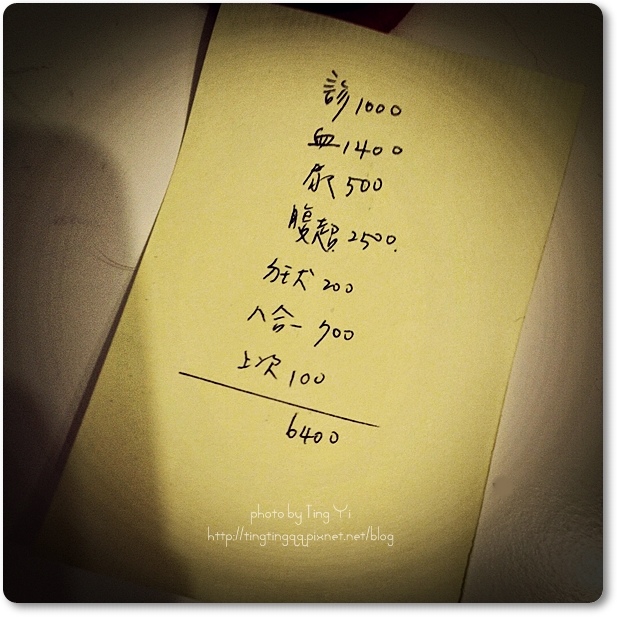 診1000
血1400
尿500
腹超2500.
狂犬 200
八合一 700
上次 100
6400
photo by Ting Yi
http://tingtingqq.pixnet.net/blog